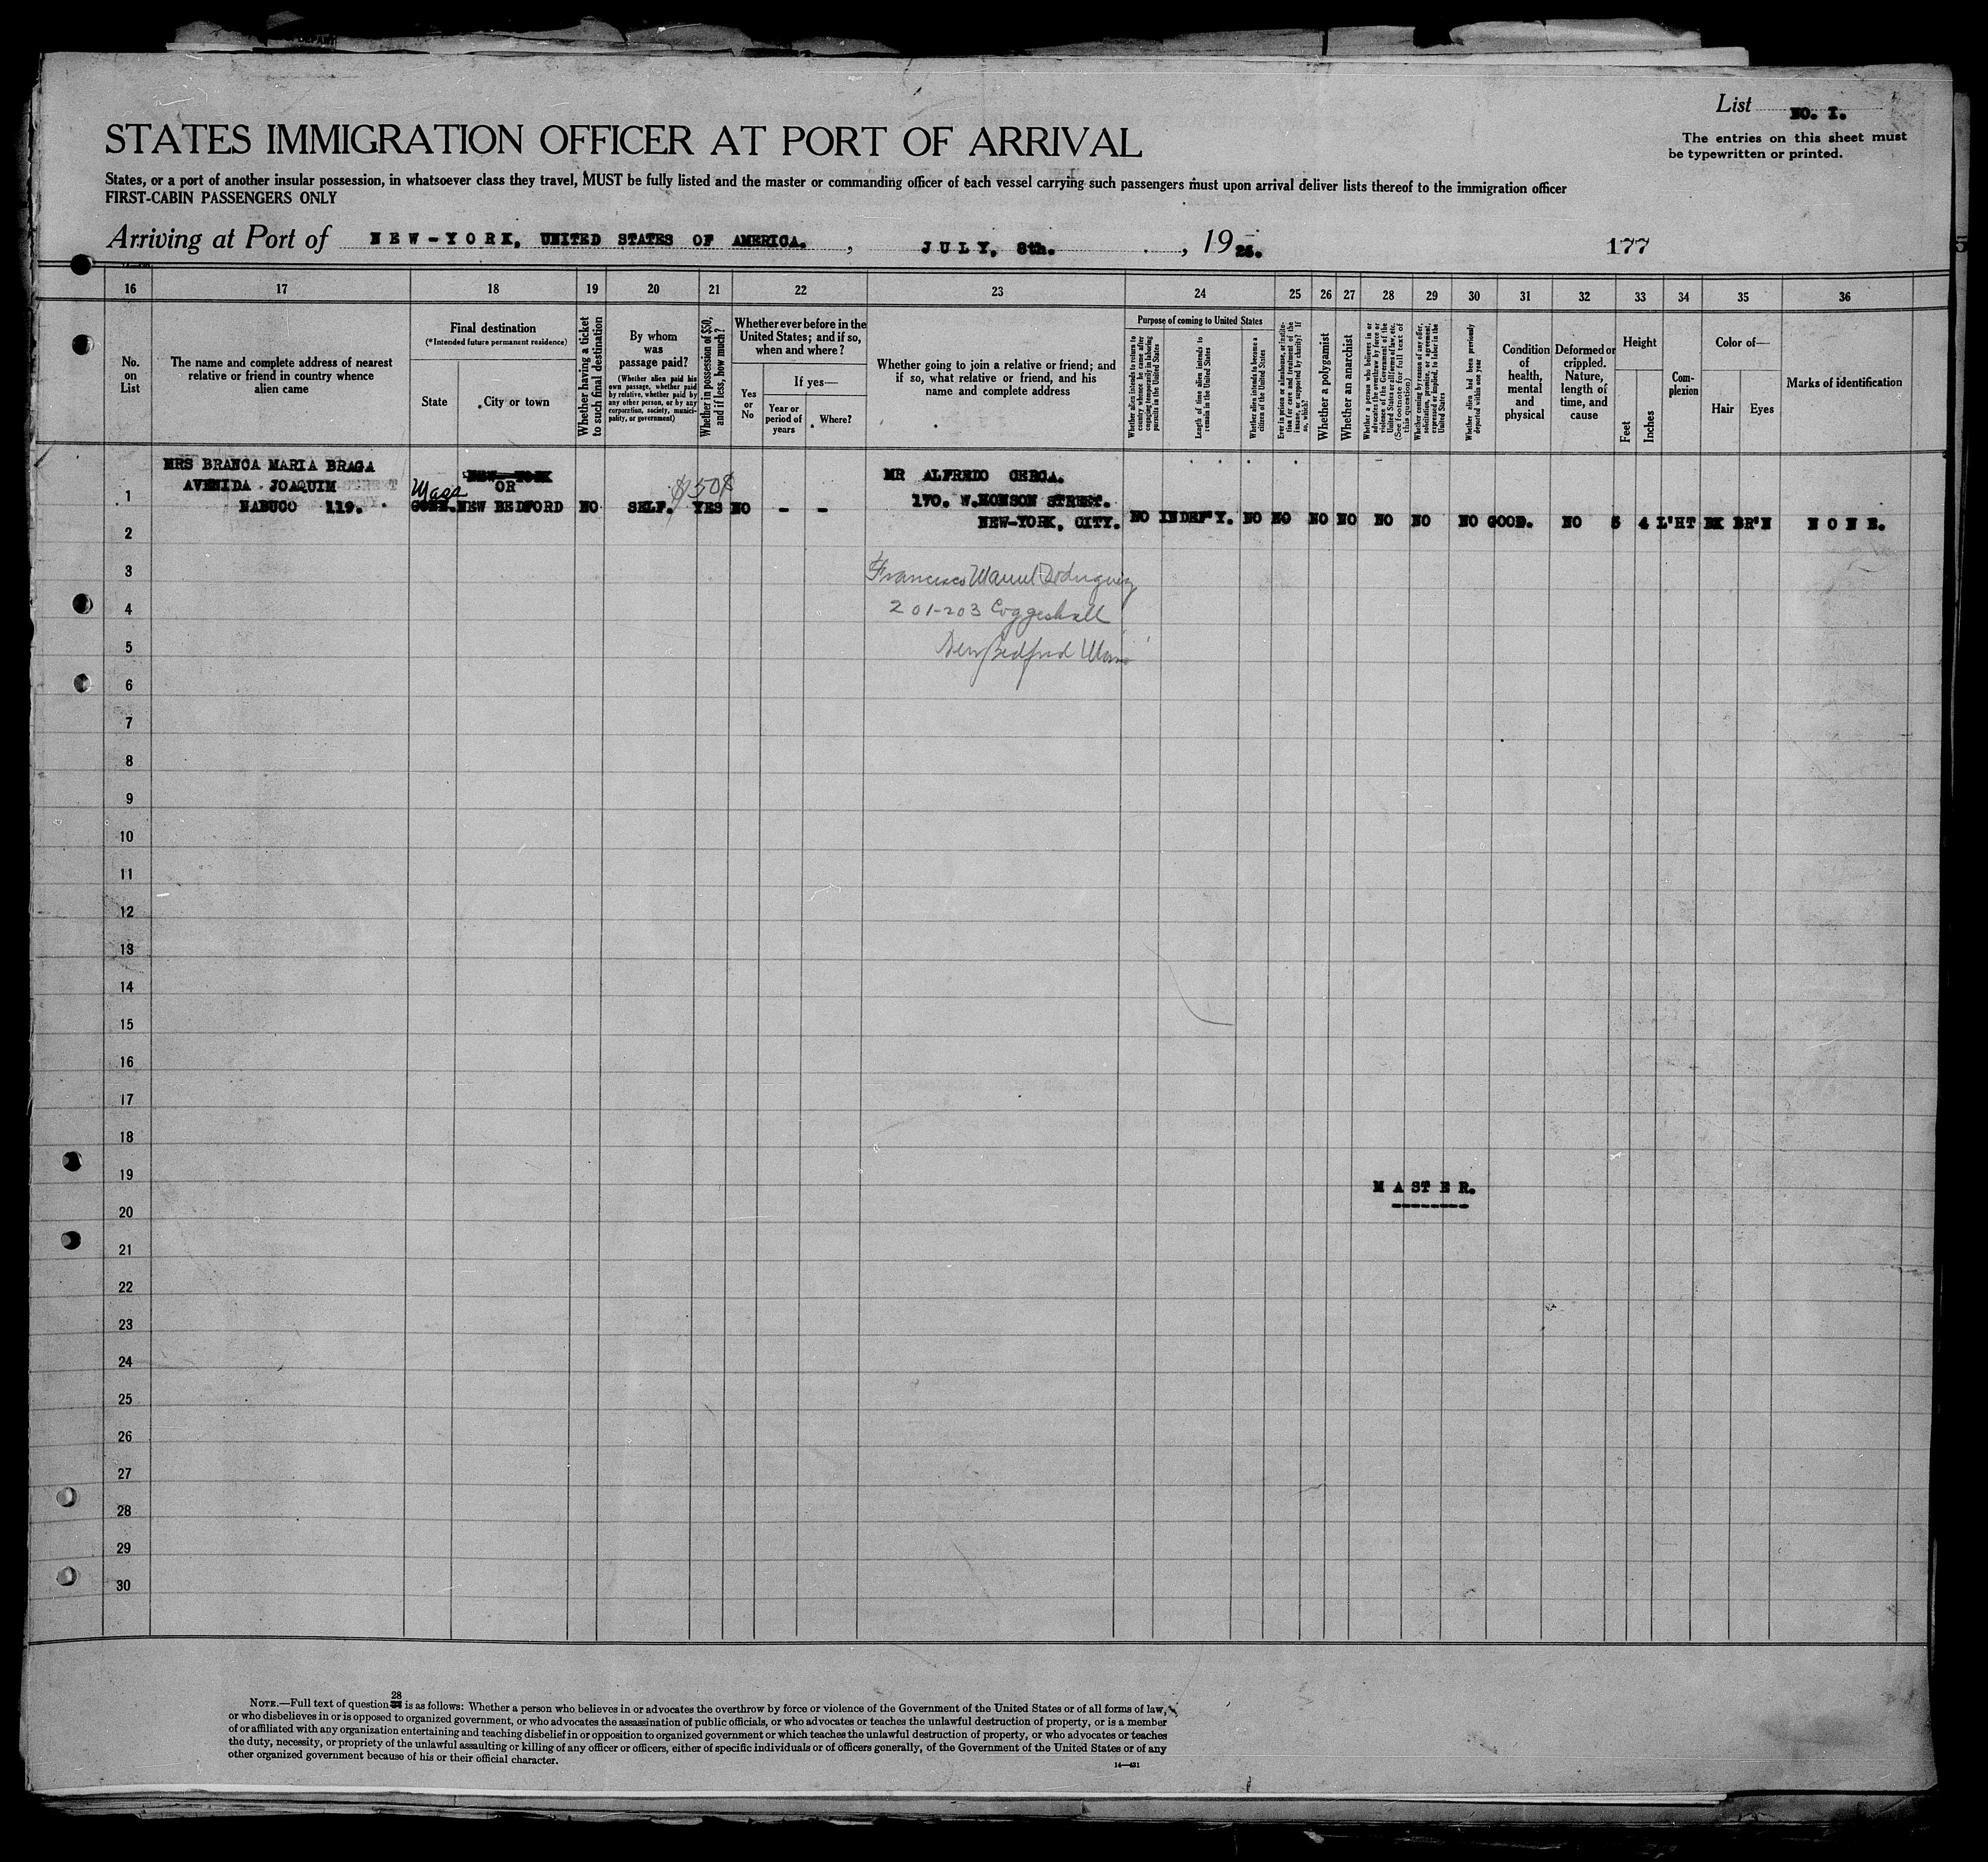 List NO. I.
The entries on this sheet must
be typewritten or printed.
STATES IMMIGRATION OFFICER AT PORT OF ARRIVAL
States, or a port of another insular possession, in whatsoever class they travel, MUST be fully listed and the master or commanding officer of each vessel carrying such passengers must upon arrival deliver lists thereof to the immigration officer
FIRST-CABIN PASSENGERS ONLY
Arriving at Port of NEW-YORK, UNITED STATES OF AMERICA. , JULY, 8th. , 19
177
16 17 18 19 20 21 22 23 24 25 26 27 28 29 30 31 32 33 34 35 36
No.
on
List
The name and complete address of nearest
relative or friend in country whence
alien came
Final destination
(*Intended future permanent residence)
State
City or town
Whether having a ticket
to such final destination
By whom
was
passage paid?
(Whether alien paid his
own passage, whether paid
by relative, whether paid by
any other person, or by any
corporation, society, munici-
pality, or government)
Whether in possession of $50,
and if less, how much?
Whether ever before in the
United States; and if so,
when and where?
Yes
or
No
If yes—
Year or
period of
years
Where?
Whether going to join a relative or friend; and
if so, what relative or friend, and his
name and complete address
Purpose of coming to United States
Whether alien intends to return to
country whence he came after
engaging temporarily in laboring
pursuits in the United States
Length of time alien intends to
remain in the United States
Whether alien intends to become a
citizen of the United States
Ever in prison or almshouse, or institu-
tion for care and treatment of the
insane, or supported by charity? If
so, which?
Whether a polygamist
Whether an anarchist
Whether a person who believes in or
advocates the overthrow by force or
violence of the Government of the
United States or all forms of law, etc.
(See footnote for full text of
this question)
Whether coming by reason of any offer,
solicitation, promise, or agreement,
expressed or implied, to labor in the
United States
Whether alien had been previously
deported within one year
Condition
of
health,
mental
and
physical
Deformed or
crippled.
Nature,
length of
time, and
cause
Height
Feet
Inches
Com-
plexion
Color of—
Hair
Eyes
Marks of identification
MRS BRANCA MARIA BRAGA
AVENIDA JOAQUIM
NABUCO 119.
Mass
NEW-YORK
OR
CONN. NEW BEDFORD
NO
SELF.
$50$
YES
NO
- -
MR ALFREDO GERGA.
170. W.MONSON STREET.
NEW-YORK, CITY.
NO INDEF'Y. NO NO NO NO NO NO NO GOOD. NO 5 4 L'HT BK BR'N NONE.
Francisco Manuel Rodriguez
201-203 Coggeshall
New Bedford Mass
1
2
3
4
5
6
7
8
9
10
11
12
13
14
15
16
17
18
19
20
21
22
23
24
25
26
27
28
29
30
MASTER.
--------
28
NOTE.—Full text of question is as follows: Whether a person who believes in or advocates the overthrow by force or violence of the Government of the United States or of all forms of law,
or who disbelieves in or is opposed to organized government, or who advocates the assassination of public officials, or who advocates or teaches the unlawful destruction of property, or is a member
of or affiliated with any organization entertaining and teaching disbelief in or opposition to organized government or which teaches the unlawful destruction of property, or who advocates or teaches
the duty, necessity, or propriety of the unlawful assaulting or killing of any officer or officers, either of specific individuals or of officers generally, of the Government of the United States or of any
other organized government because of his or their official character.
14—431